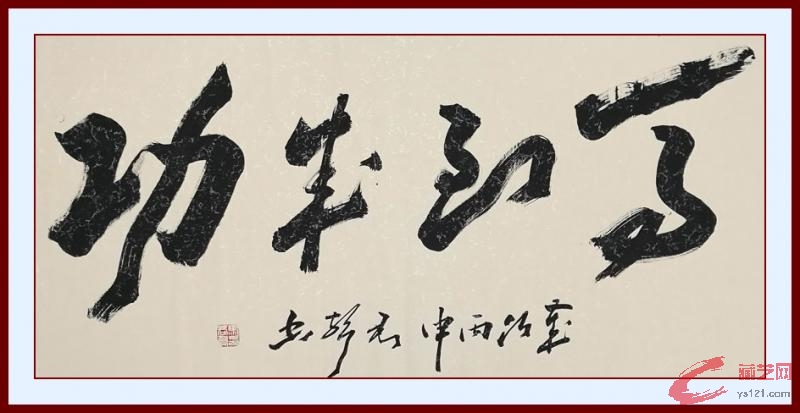 马到成功
歲次丙申
藏艺网
ys121.com